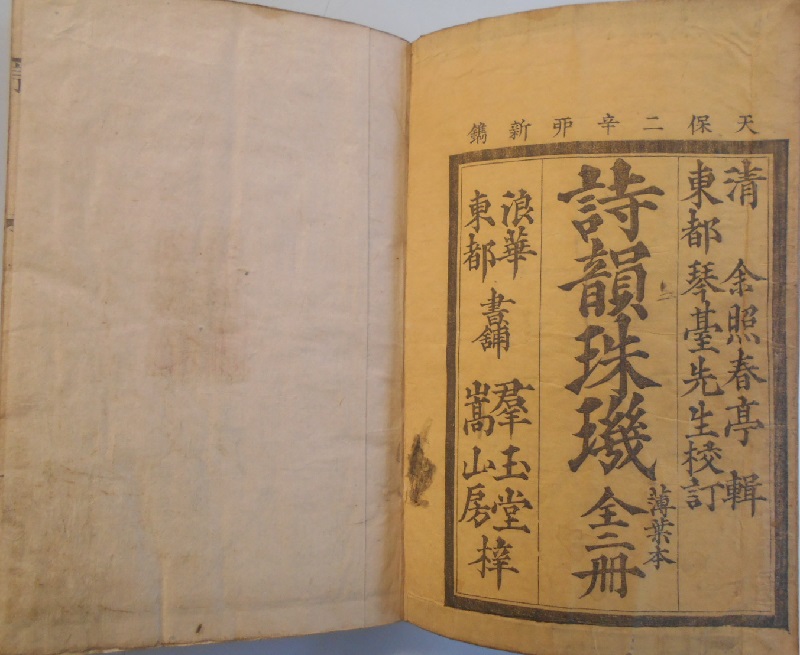 天保二辛卯新鐫
清 余照春亭 輯
東都 琴臺先生校訂
詩韻珠璣 全二冊
薄葉本
浪華 書舗 羣玉堂
東都 嵩山房 梓